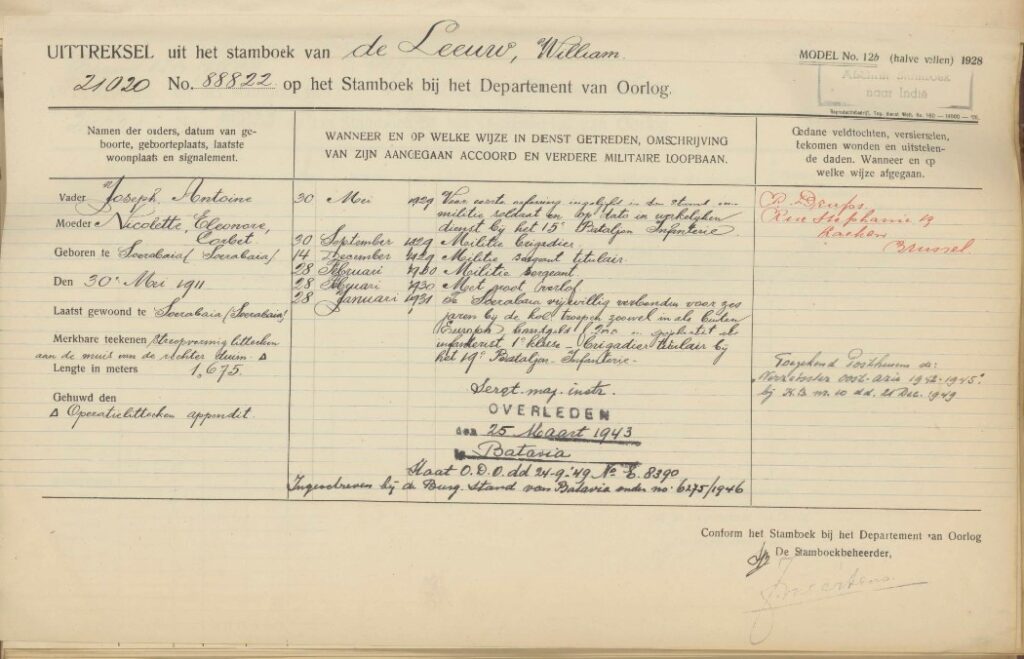 UITTREKSEL uit het stamboek van de Leeuw, William.
MODEL No. 12b (halve vellen) 1928
21020 No. 88822 op het Stamboek bij het Departement van Oorlog.
Afschrift Stamboek
naar Indië
Namen der ouders, datum van ge-
boorte, geboorteplaats, laatste
woonplaats en signalement.
WANNEER EN OP WELKE WIJZE IN DIENST GETREDEN, OMSCHRIJVING
VAN ZIJN AANGEGAAN ACCOORD EN VERDERE MILITAIRE LOOPBAAN.
Gedane veldtochten, versierselen,
bekomen wonden en uitsteken-
de daden. Wanneer en op
welke wijze afgegaan.
Vader Joseph, Antoine
Moeder Nicolette, Eleonore,
Corbet
Geboren te Soerabaia/Soerabaia/
Den 30 Mei 1911
Laatst gewoond te Soerabaia/Soerabaia/
Merkbare teekenen streepvormig litteeken
aan de muis van de rechter duim. Δ
Lengte in meters 1,675.
Gehuwd den
Δ Operatielitteeken appendit.
30 Mei 1929 Voor eerste oefening ingelijfd in den
militie soldaat en op dato in werkelijken
dienst bij het 15e Bataljon Infanterie.
30 September 1929 Militie Brigadier.
14 December 1929 Militie sergeant titulair.
28 Februari 1930 Militie sergeant.
28 Februari 1930 Met groot verlof.
28 Januari 1931 Te Soerabaia vrijwillig verbonden voor zes
jaren bij de kol. troepen zoowel in als buiten
Europa, handgeld en
infanterist 1e klasse - Brigadier titulair bij
het 19e Bataljon Infanterie.
Sergt. maj. instr.
OVERLEDEN
den 25 Maart 1943
te Batavia
Staat O.D.O. dd 24-9-'49 No E. 8390
Ingeschreven bij de Burg. Stand van Batavia onder no: 6275/1946
Rue Stephanie 19
Laeken
Brussel
Toegekend Posthuum de:
"Verzetsster Oost-Azië 1942-1945."
bij K.B. no. 10 dd. 21 Dec. 1949
Conform het Stamboek bij het Departement van Oorlog
De Stamboekbeheerder,